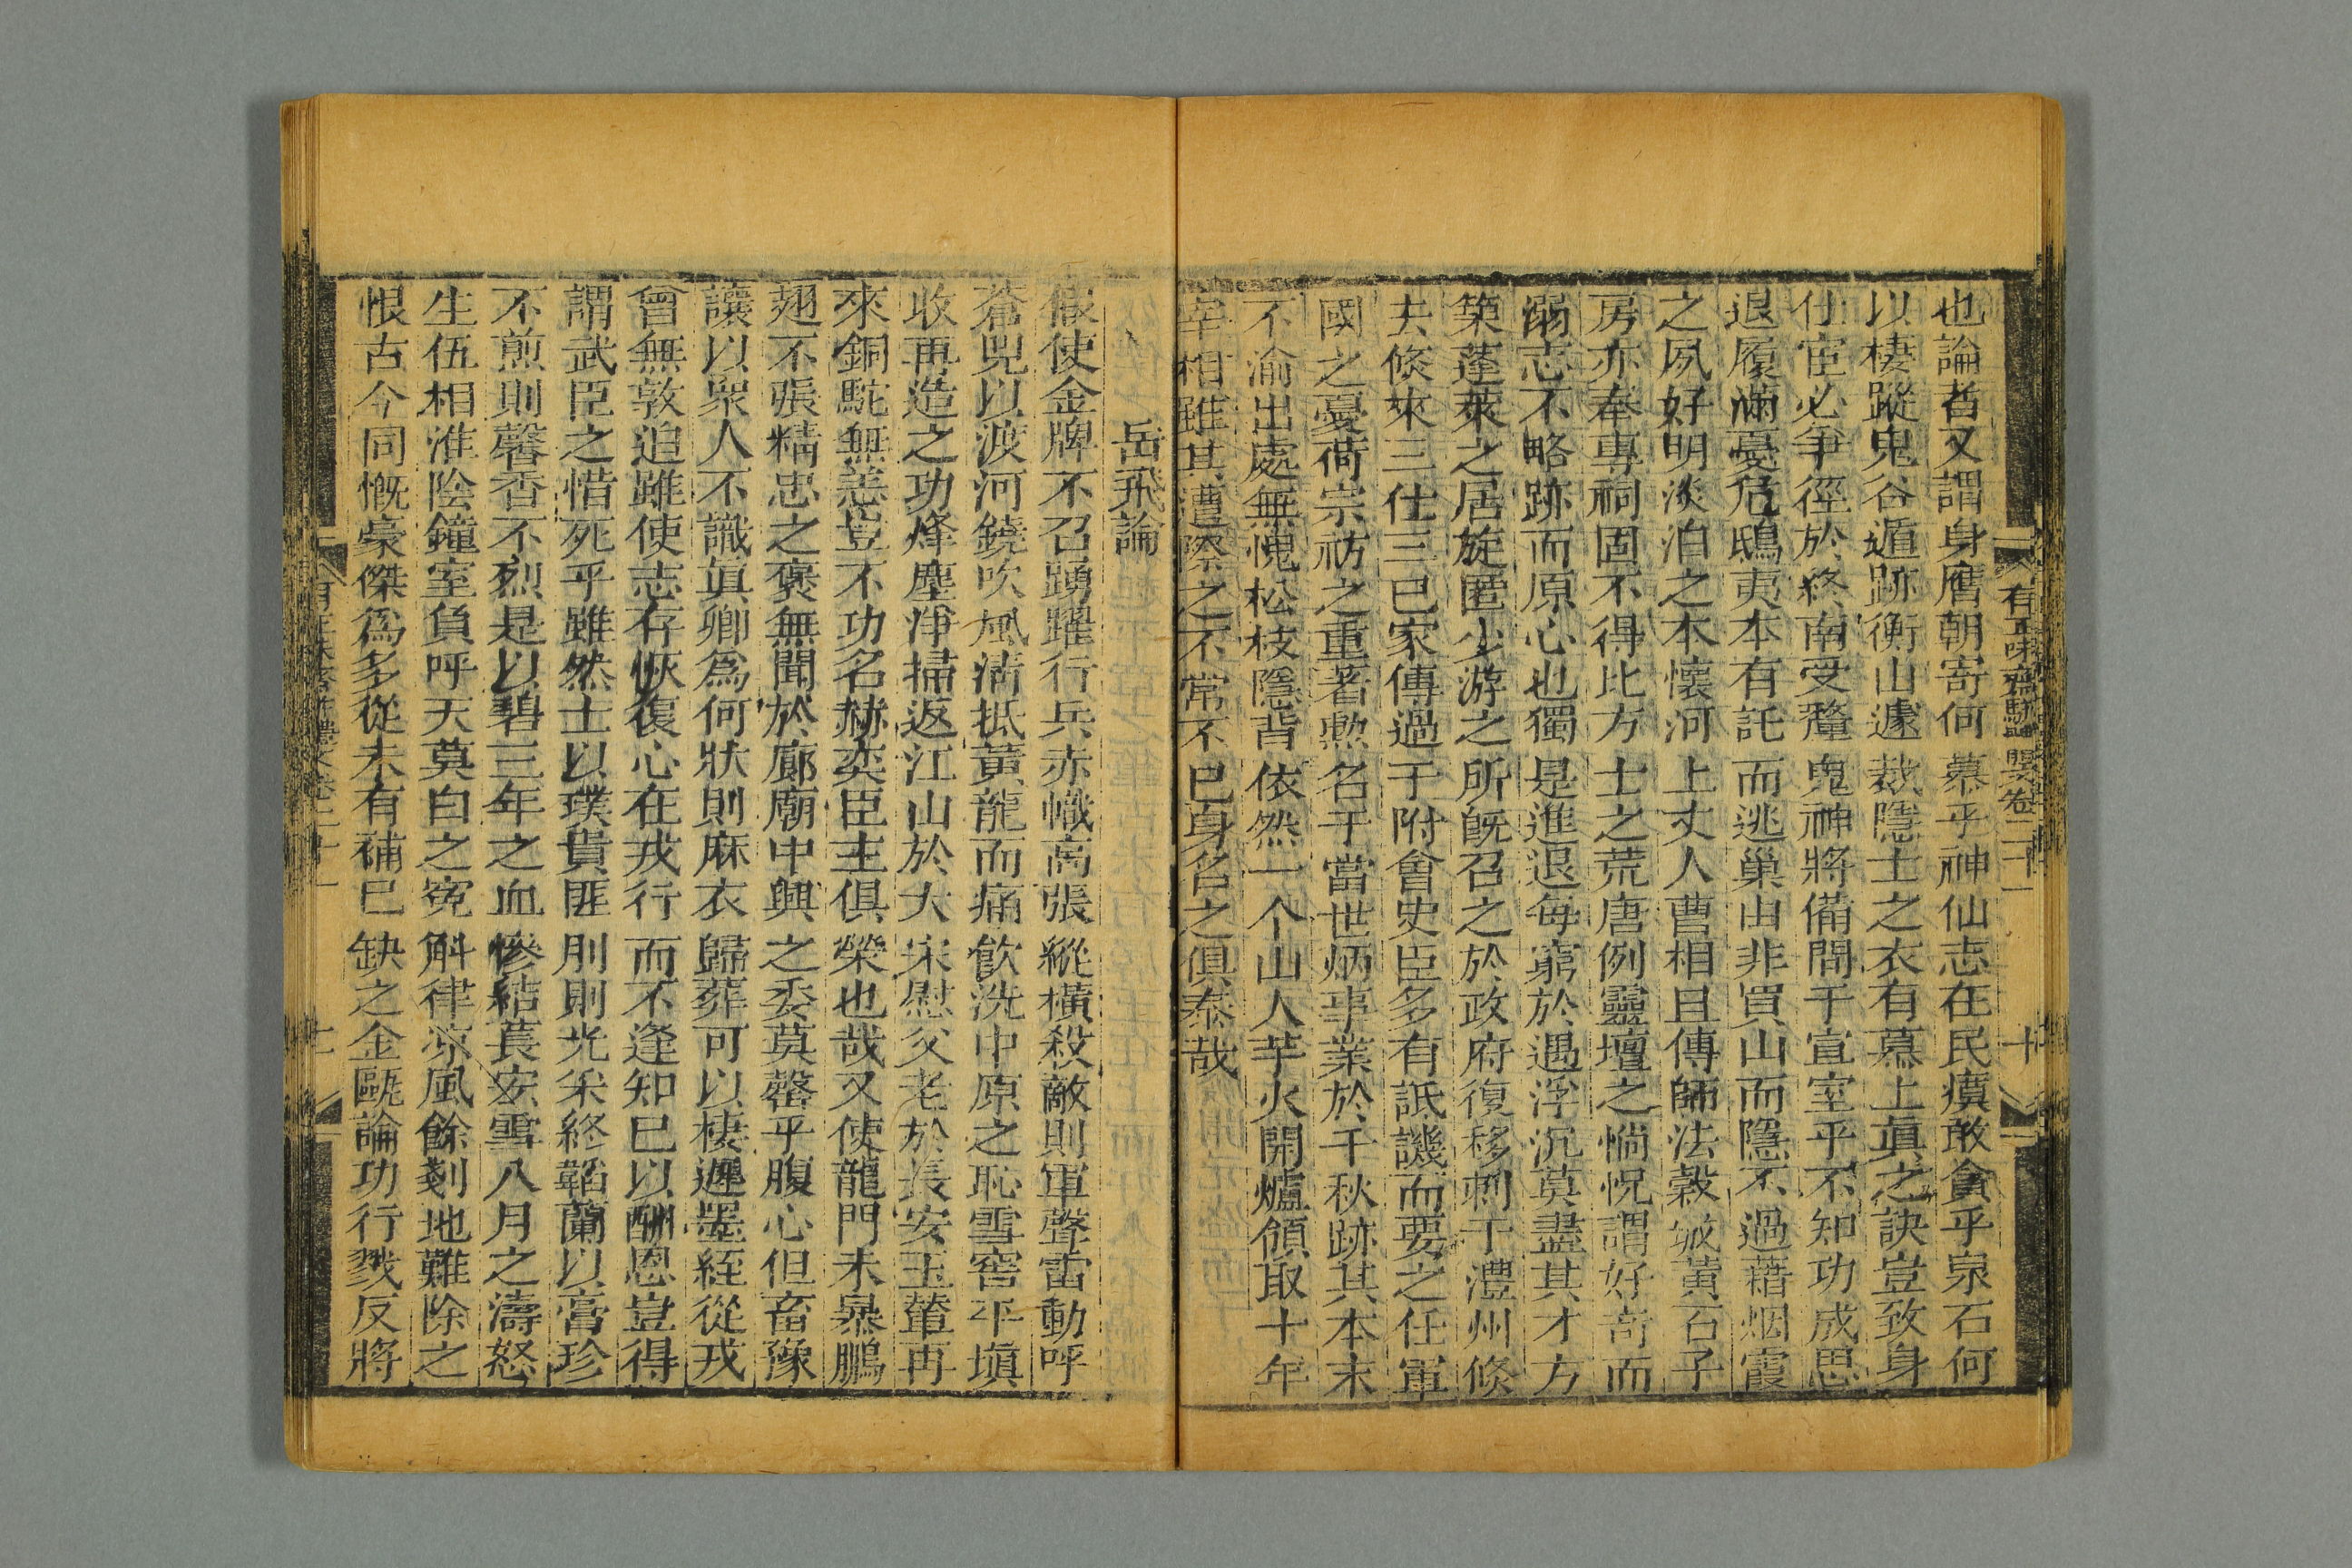 有正味齋駢體文卷二十一
十
也論者又謂身膺朝寄何慕乎神仙志在民瘼敢貪乎泉石何
以棲蹤鬼谷遁跡衡山遽裁隱士之衣有慕上真之訣豈致身
仕宦必爭徑於終南受釐鬼神將備問于宣室乎不知功成思
退履滿憂危鴟夷本有託而逃巢由非買山而隱不過藉烟霞
之夙好明淡泊之本懷河上丈人曹相且傳師法穀城黃石子
房亦奉專祠固不得比方士之荒唐例靈壇之惝怳謂好奇而
溺志不略跡而原心也獨是進退每窮於遇浮沉莫盡其才方
築蓬萊之居旋匿少游之所既召之於政府復移刺于澧州倏
去倏來三仕三已家傳過于附會史臣多有詆譏而要之任軍
國之憂荷宗祊之重著勲名于當世炳事業於千秋跡其本末
不渝出處無愧松枝隱背依然一个山人芋火開爐領取十年
宰相雖其遭際之不常不已身名之俱泰哉
岳飛論
假使金牌不召踴躍行兵赤幟高張縱橫殺敵則軍聲雷動呼
蒼兕以渡河鐃吹風淸抵黃龍而痛飮洗中原之恥雪窖平塡
收再造之功烽塵淨掃返江山於大宋慰父老於長安玉輦再
來銅駝無恙豈不功名赫奕臣主俱榮也哉又使龍門未暴鵬
翅不張精忠之褒無聞於廊廟中興之委莫罄乎腹心但畜豫
讓以衆人不識眞卿爲何狀則麻衣歸葬可以棲遲墨絰從戎
曾無敦迫雖使志存恢復心在戎行而不逢知已以酬恩豈得
謂武臣之惜死乎雖然士以璞貴匪刖則光采終韜蘭以膏珍
不煎則馨香不烈是以碧三年之血慘結萇宏雪八月之濤怒
生伍相淮陰鐘室負呼天莫白之寃斛律涼風餘剗地難除之
恨古今同慨豪傑爲多從未有補已缺之金甌論功行戮反將
十一